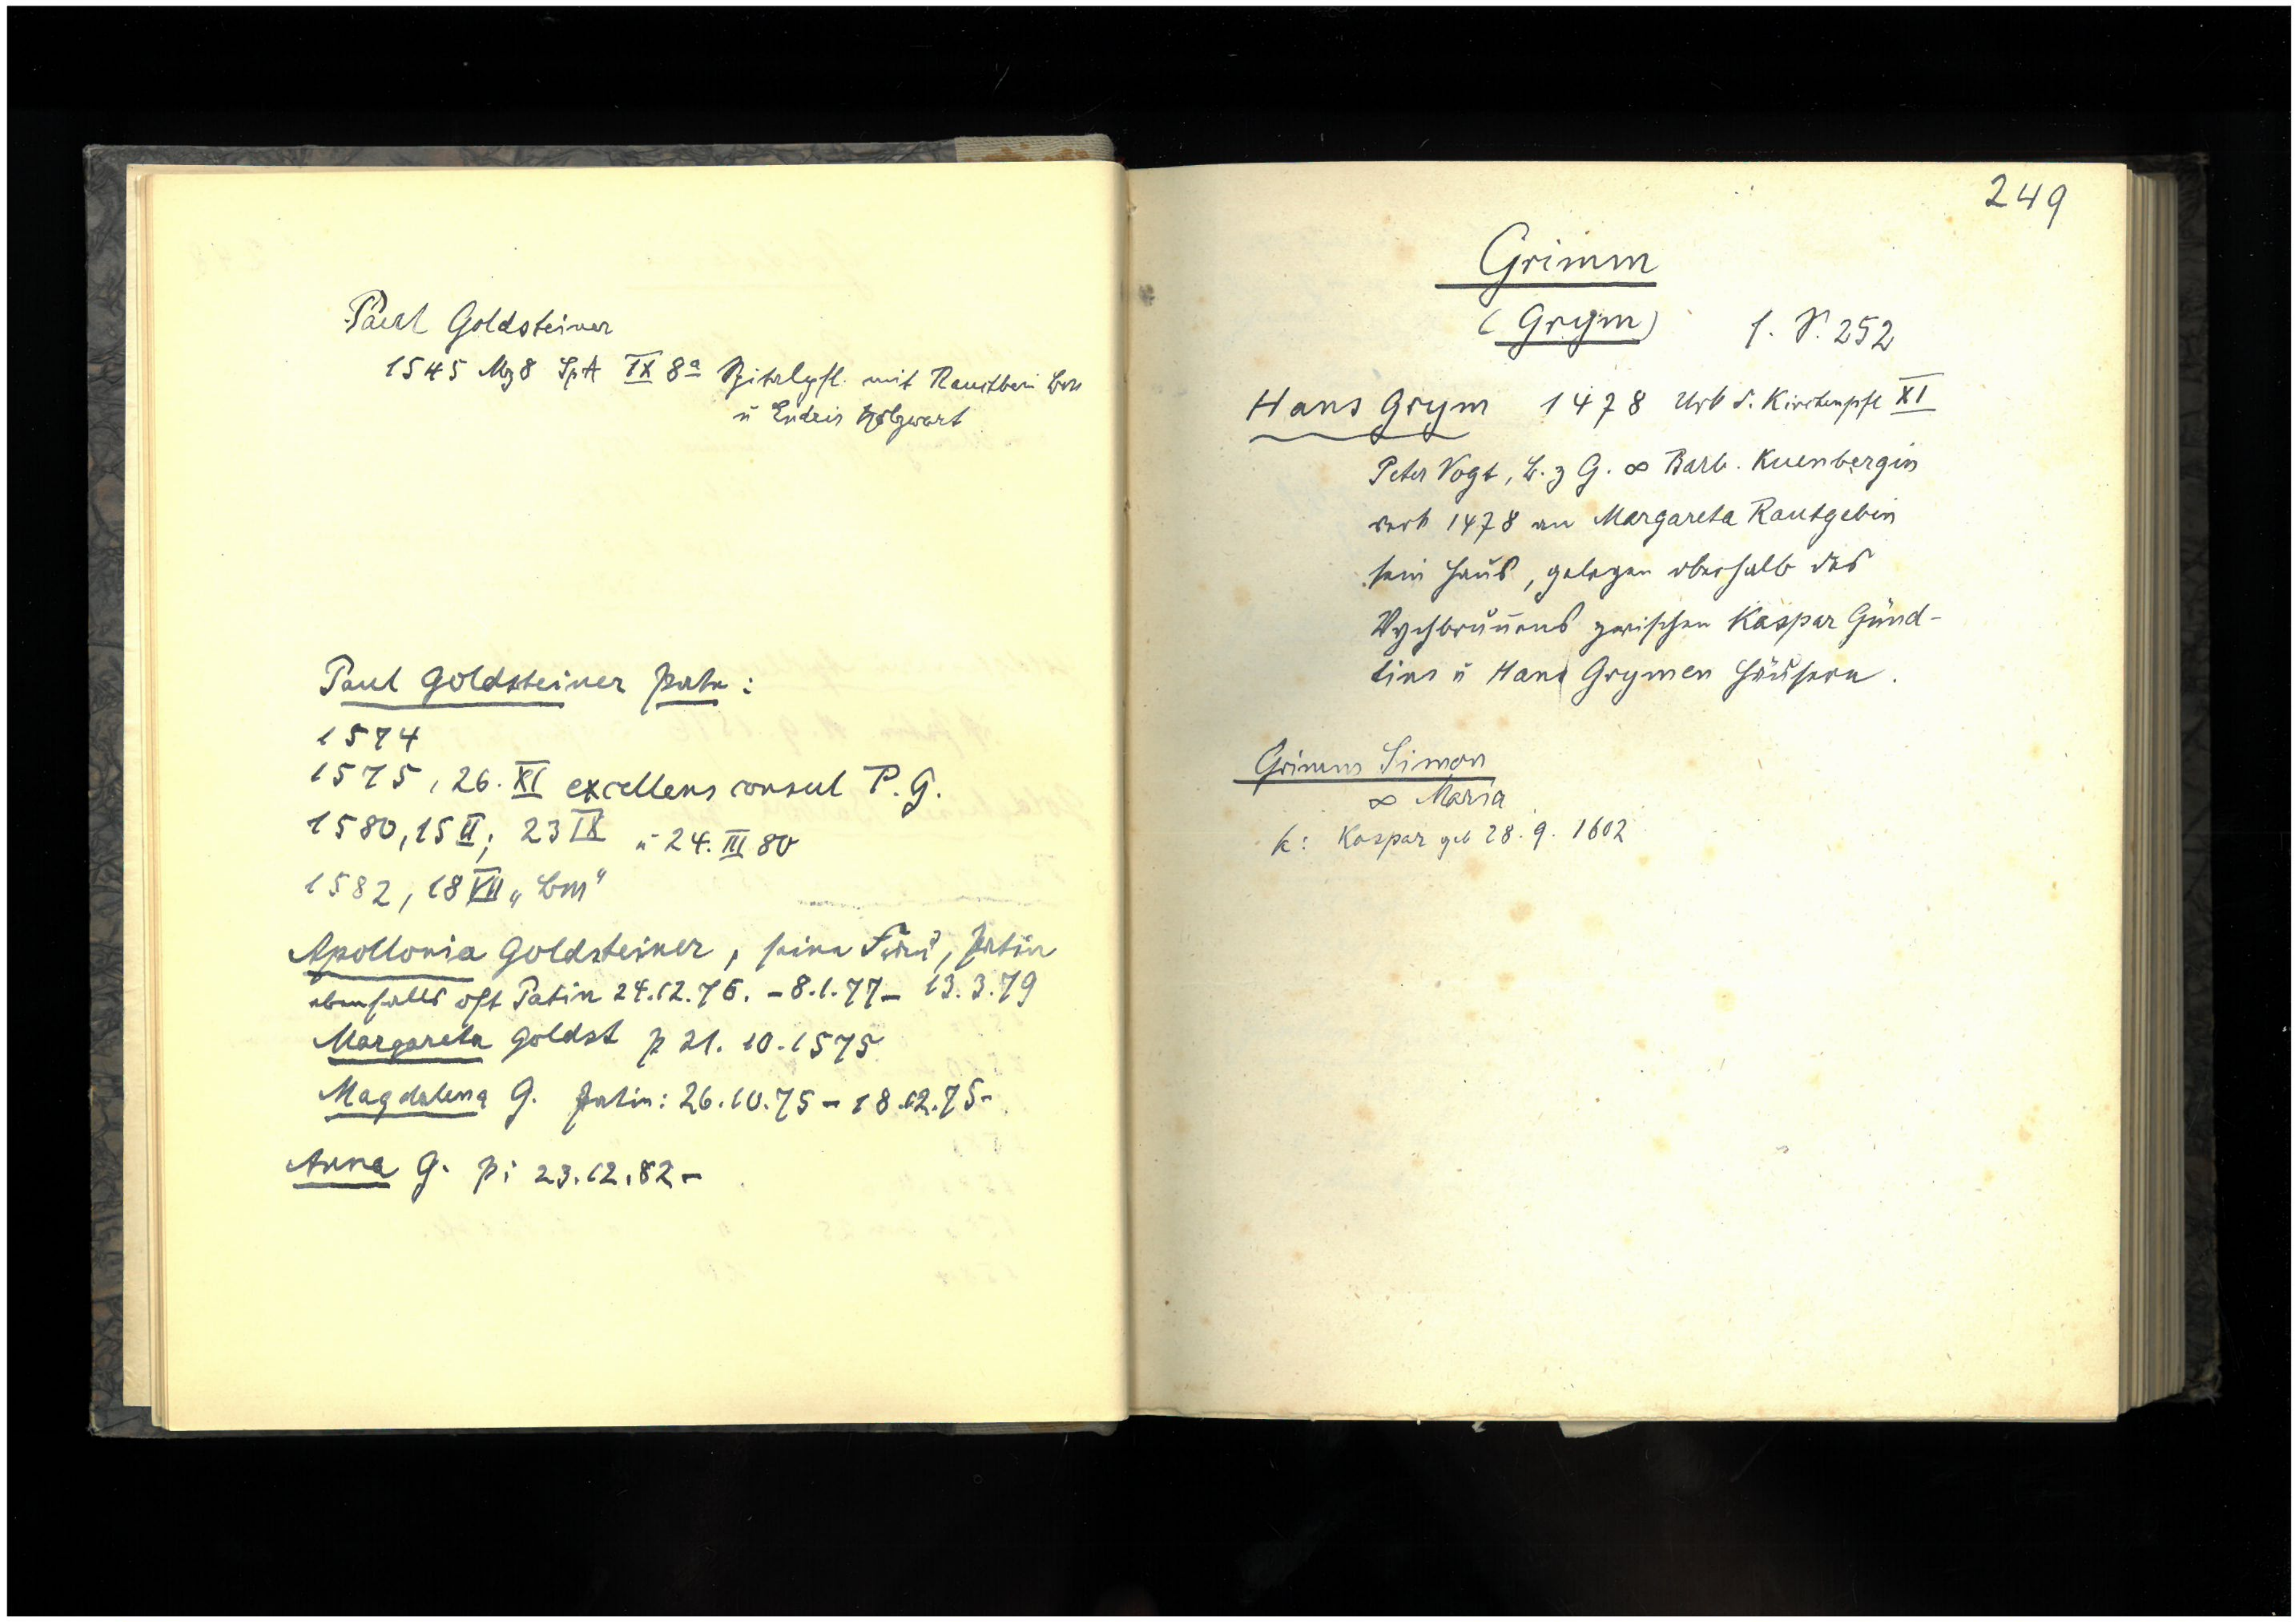 Paul Goldsteiner
1545 Mz 8 SpA IX 8a Spitalpfl. mit Rauchbein Bm
u Endris Holzwart
Paul Goldsteiner Pate:
1574
1575, 26. XI excellens consul P. G.
1580, 15 II; 23 IX u 24. III 80
1582, 18 VII „Bm“
Apollonia Goldsteiner, seine Frau, Patin
ebenfalls oft Patin 24.12.76. – 8.1.77 – 13.3.79
Margareta Goldst p 21. 10. 1575
Magdalena G. Patin: 26.10.75 – 18.12.75 –
Anna G. p: 23.12.82 –
249
Grimm
(Grym) s. S. 252
Hans Grym 1478 Urk d. Kirchenpfl XI
Peter Vogt, B. z G. ∞ Barb. Kuenbergin
verk 1478 an Margareta Rautgebin
sein Haus, gelegen oberhalb des
Vychbrunnens zwischen Kaspar Günd-
lins u Hans Grymen Häusern.
Grimm Simon
∞ Maria
k: Kaspar geb 28. 9. 1602